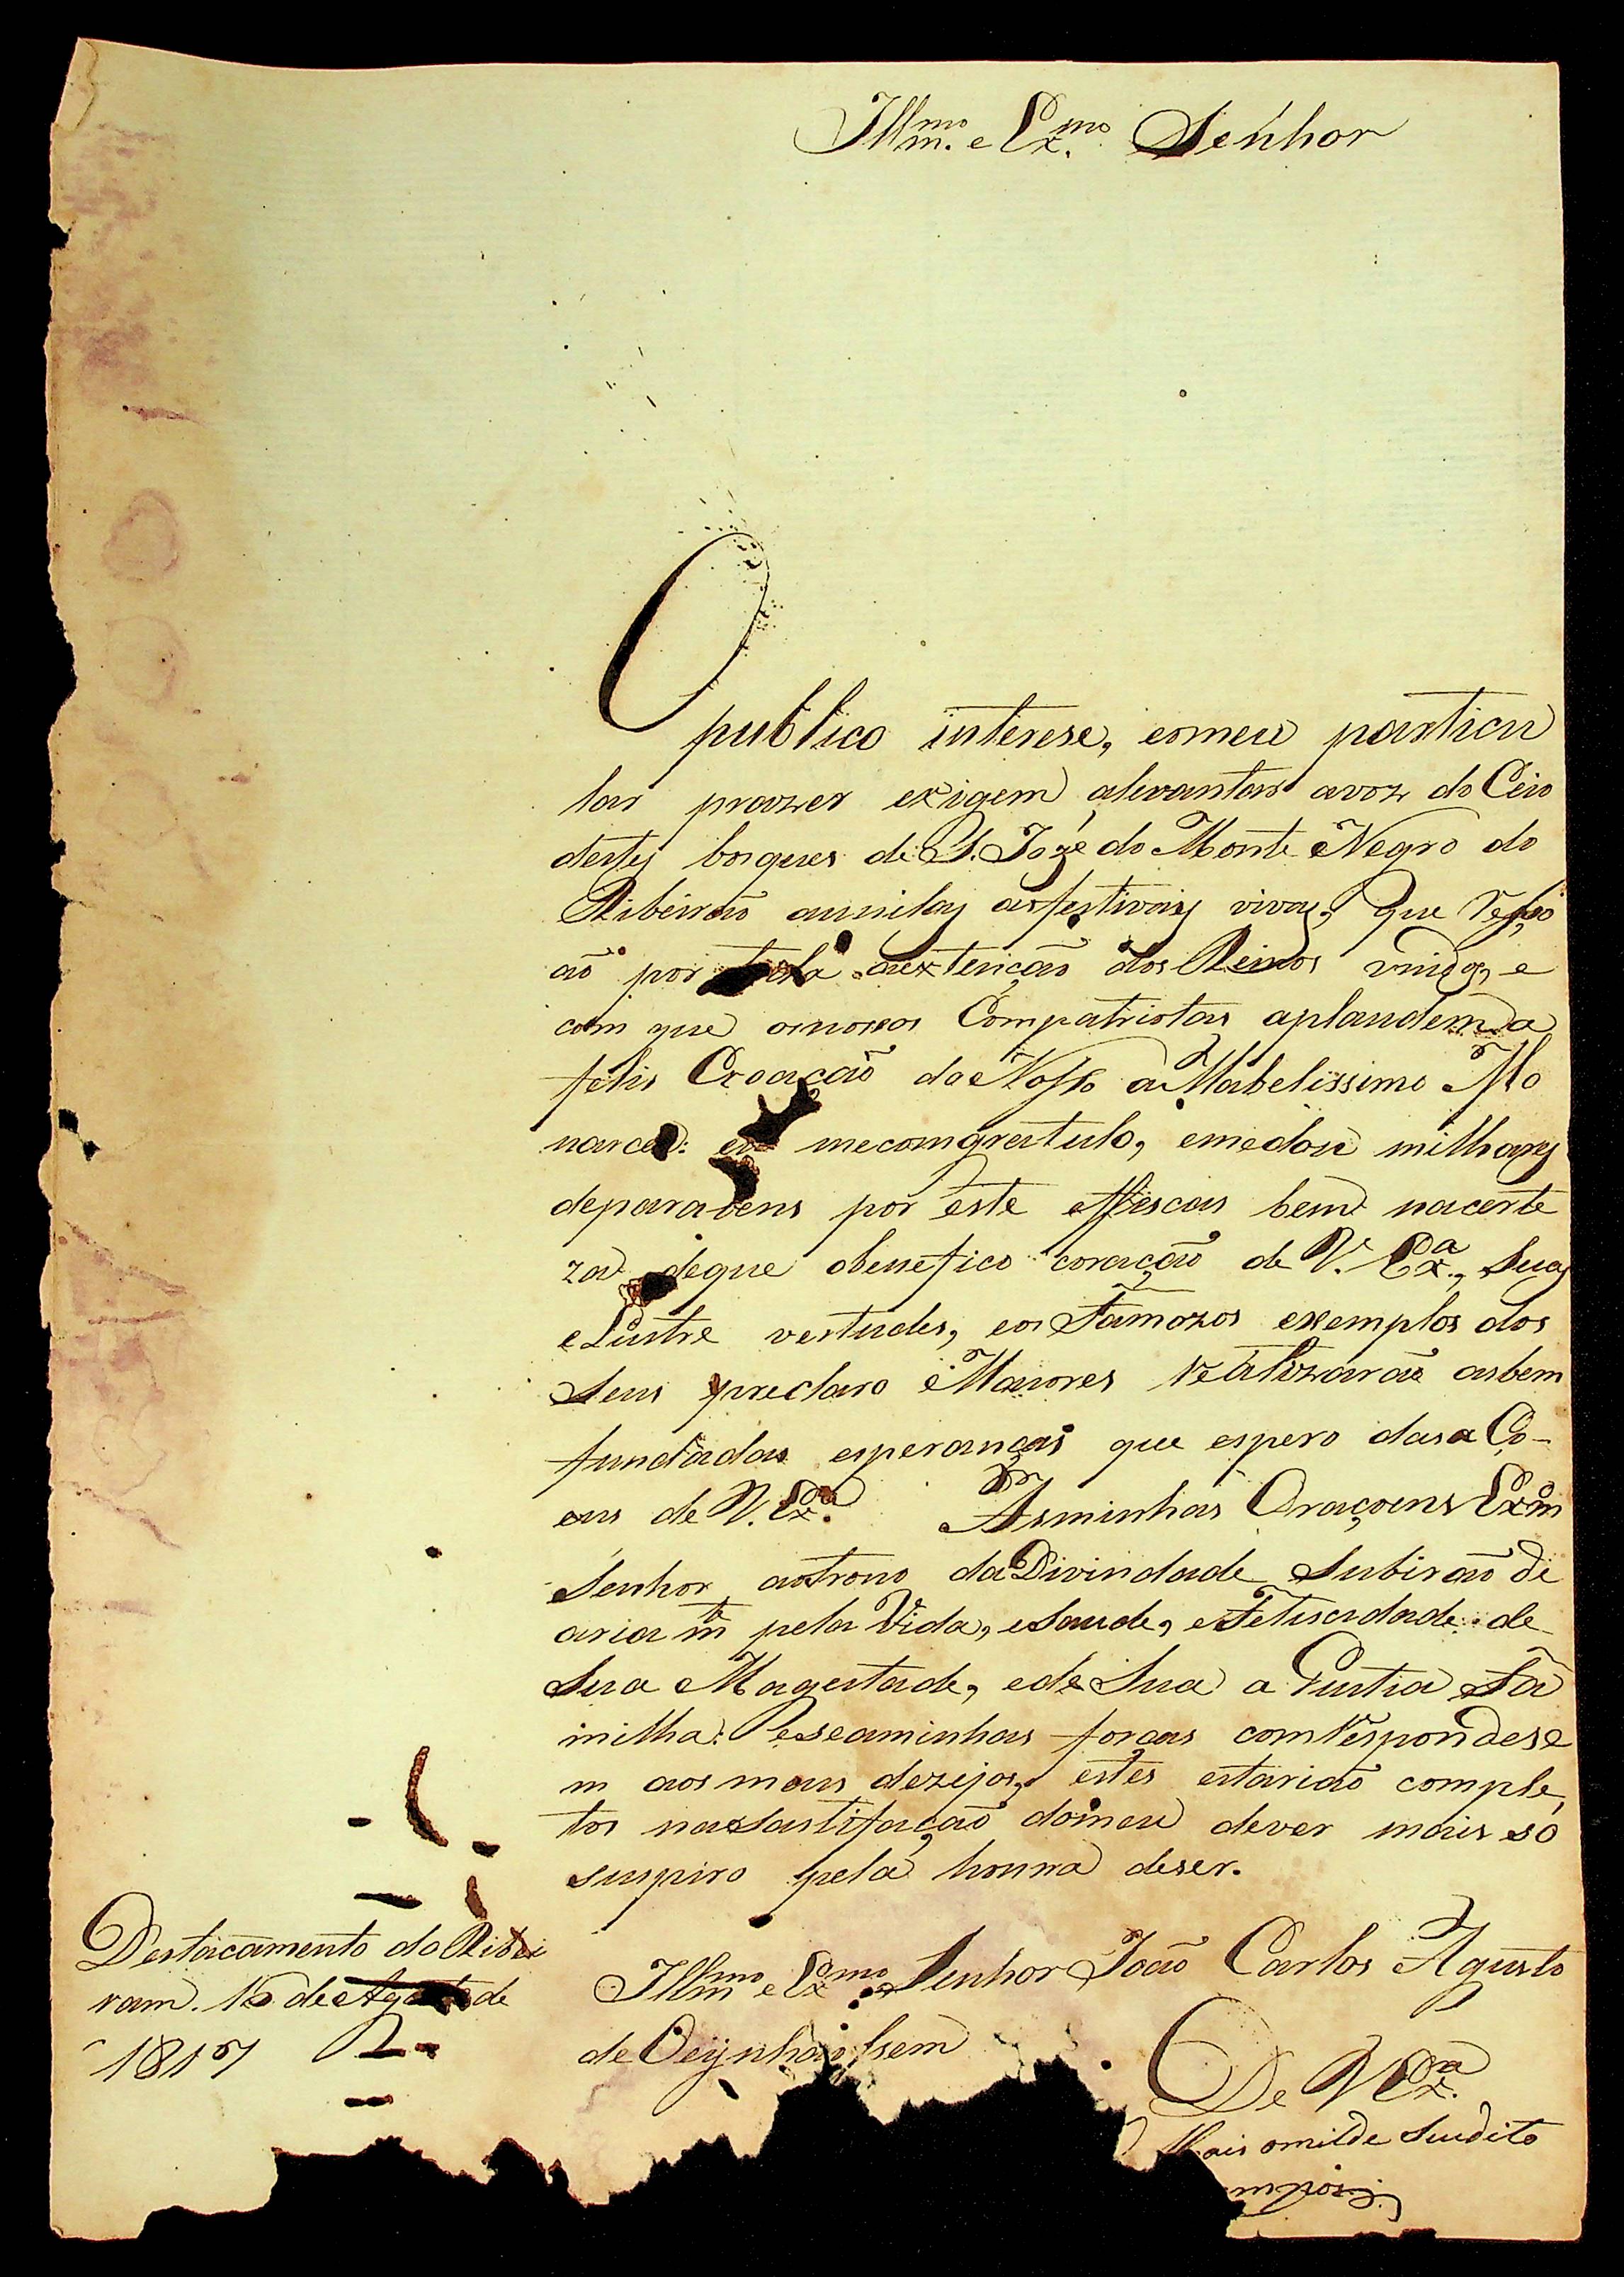 Illm.mo e Ex.mo Senhor
O
publico interese, eomeu particu
lar prazer exigem alevantar avoz do Ceio
destes bosques de S. Jozé do Monte Negro do
Ribeirão aunilas asfestivais vivas, que
aõ por toda aextenção dos Reinos unidos, e
com que osnosos Compatriotas aplaudem a
felis Croação do Nosso aMabelissimo Mo
narca: eu mecomgratulo, emedou milhares
deparabens por este bem nacerte
za deque obenefico coração de V. Ex.a, Suas
eLustre vertudes, eos Famozos exemplos dos
Seus preclaro Maiores realizarão asbem
fundadas esperanças que espero dasa Co-
ens de V. Ex.a Asminhas Oraçoens Exm
Senhor aotrono da Divindade Subirão Di
aria m.te pela Vida, eSaude, eFeliscidade de
Sua Magestade, ede Sua a Gustia Fa
milha: eseaminhas forças comrespondese
m aos meus dezejos, estes estarião comple,
tos nasastifação domeu dever mais so
suspiro pela honna deser.
Destacamento do Ribei
ram. 15 de Agosto de
1817
Illm.mo e Ex.mo Senhor João Carlos Agusto
de Oeijnhaussem
De V Ex.a
Mais omilde Sudito